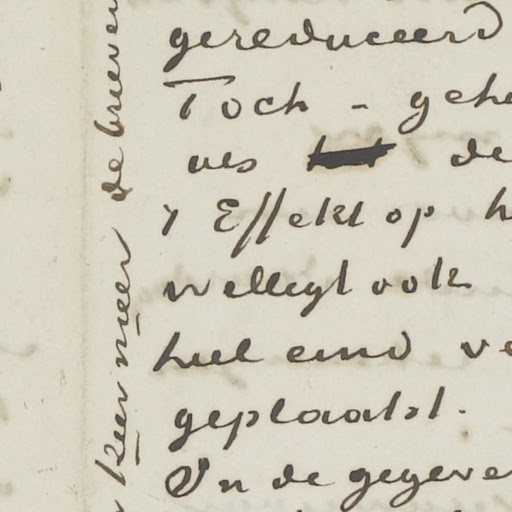 gereduceerd
Toch - geh
ves de
'r Effekt op h
wellegt ook
heel eind ve
geplaatst.
In de gegeve
keer meer de brieven